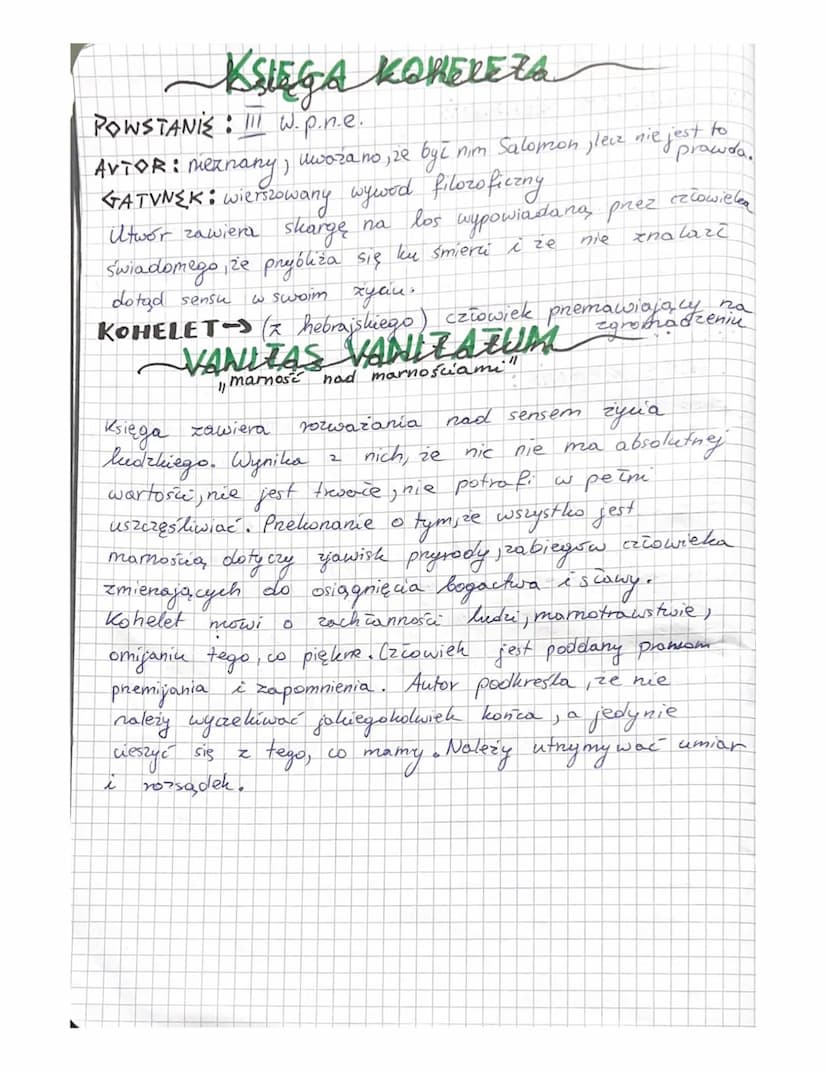 KSIĘGA KOHELETA
POWSTANIE: III w.p.n.e.
AUTOR: nieznany, uważano, że był nim Salomon, lecz nie jest to
prawda.
GATUNEK: wierszowany wywód filozoficzny
Utwór zawiera skargę na los wypowiadaną przez człowieka
świadomego, że przybliża się ku śmierci i że nie znalazł
dotąd sensu w swoim życiu.
KOHELET → (z hebrajskiego) człowiek przemawiający na
zgromadzeniu
VANITAS VANITATUM
"marność nad marnościami"
Księga zawiera rozważania nad sensem życia
ludzkiego. Wynika z nich, że nic nie ma absolutnej
wartości, nie jest trwałe, nie potrafi w pełni
uszczęśliwiać. Przekonanie o tym, że wszystko jest
marnością dotyczy zjawisk przyrody, zabiegów człowieka
zmierzających do osiągnięcia bogactwa i sławy.
Kohelet mówi o zachłanności ludzi, marnotrawstwie,
omijaniu tego, co piękne. Człowiek jest poddany prawom
przemijania i zapomnienia. Autor podkreśla, że nie
należy wyczekiwać jakiegokolwiek końca, a jedynie
cieszyć się z tego, co mamy. Należy utrzymywać umiar
i rozsądek.